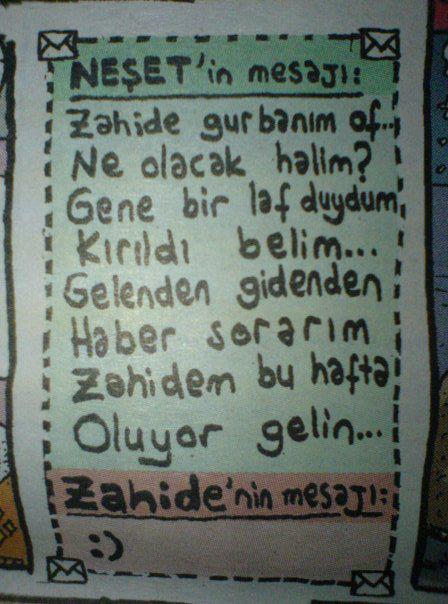 NEŞET'in mesajı:
Zahide gurbanım of..
Ne olacak halim?
Gene bir laf duydum,
Kırıldı belim...
Gelenden gidenden
Haber sorarım
Zahidem bu hafta
Oluyor gelin...
Zahide'nin mesajı:
:)